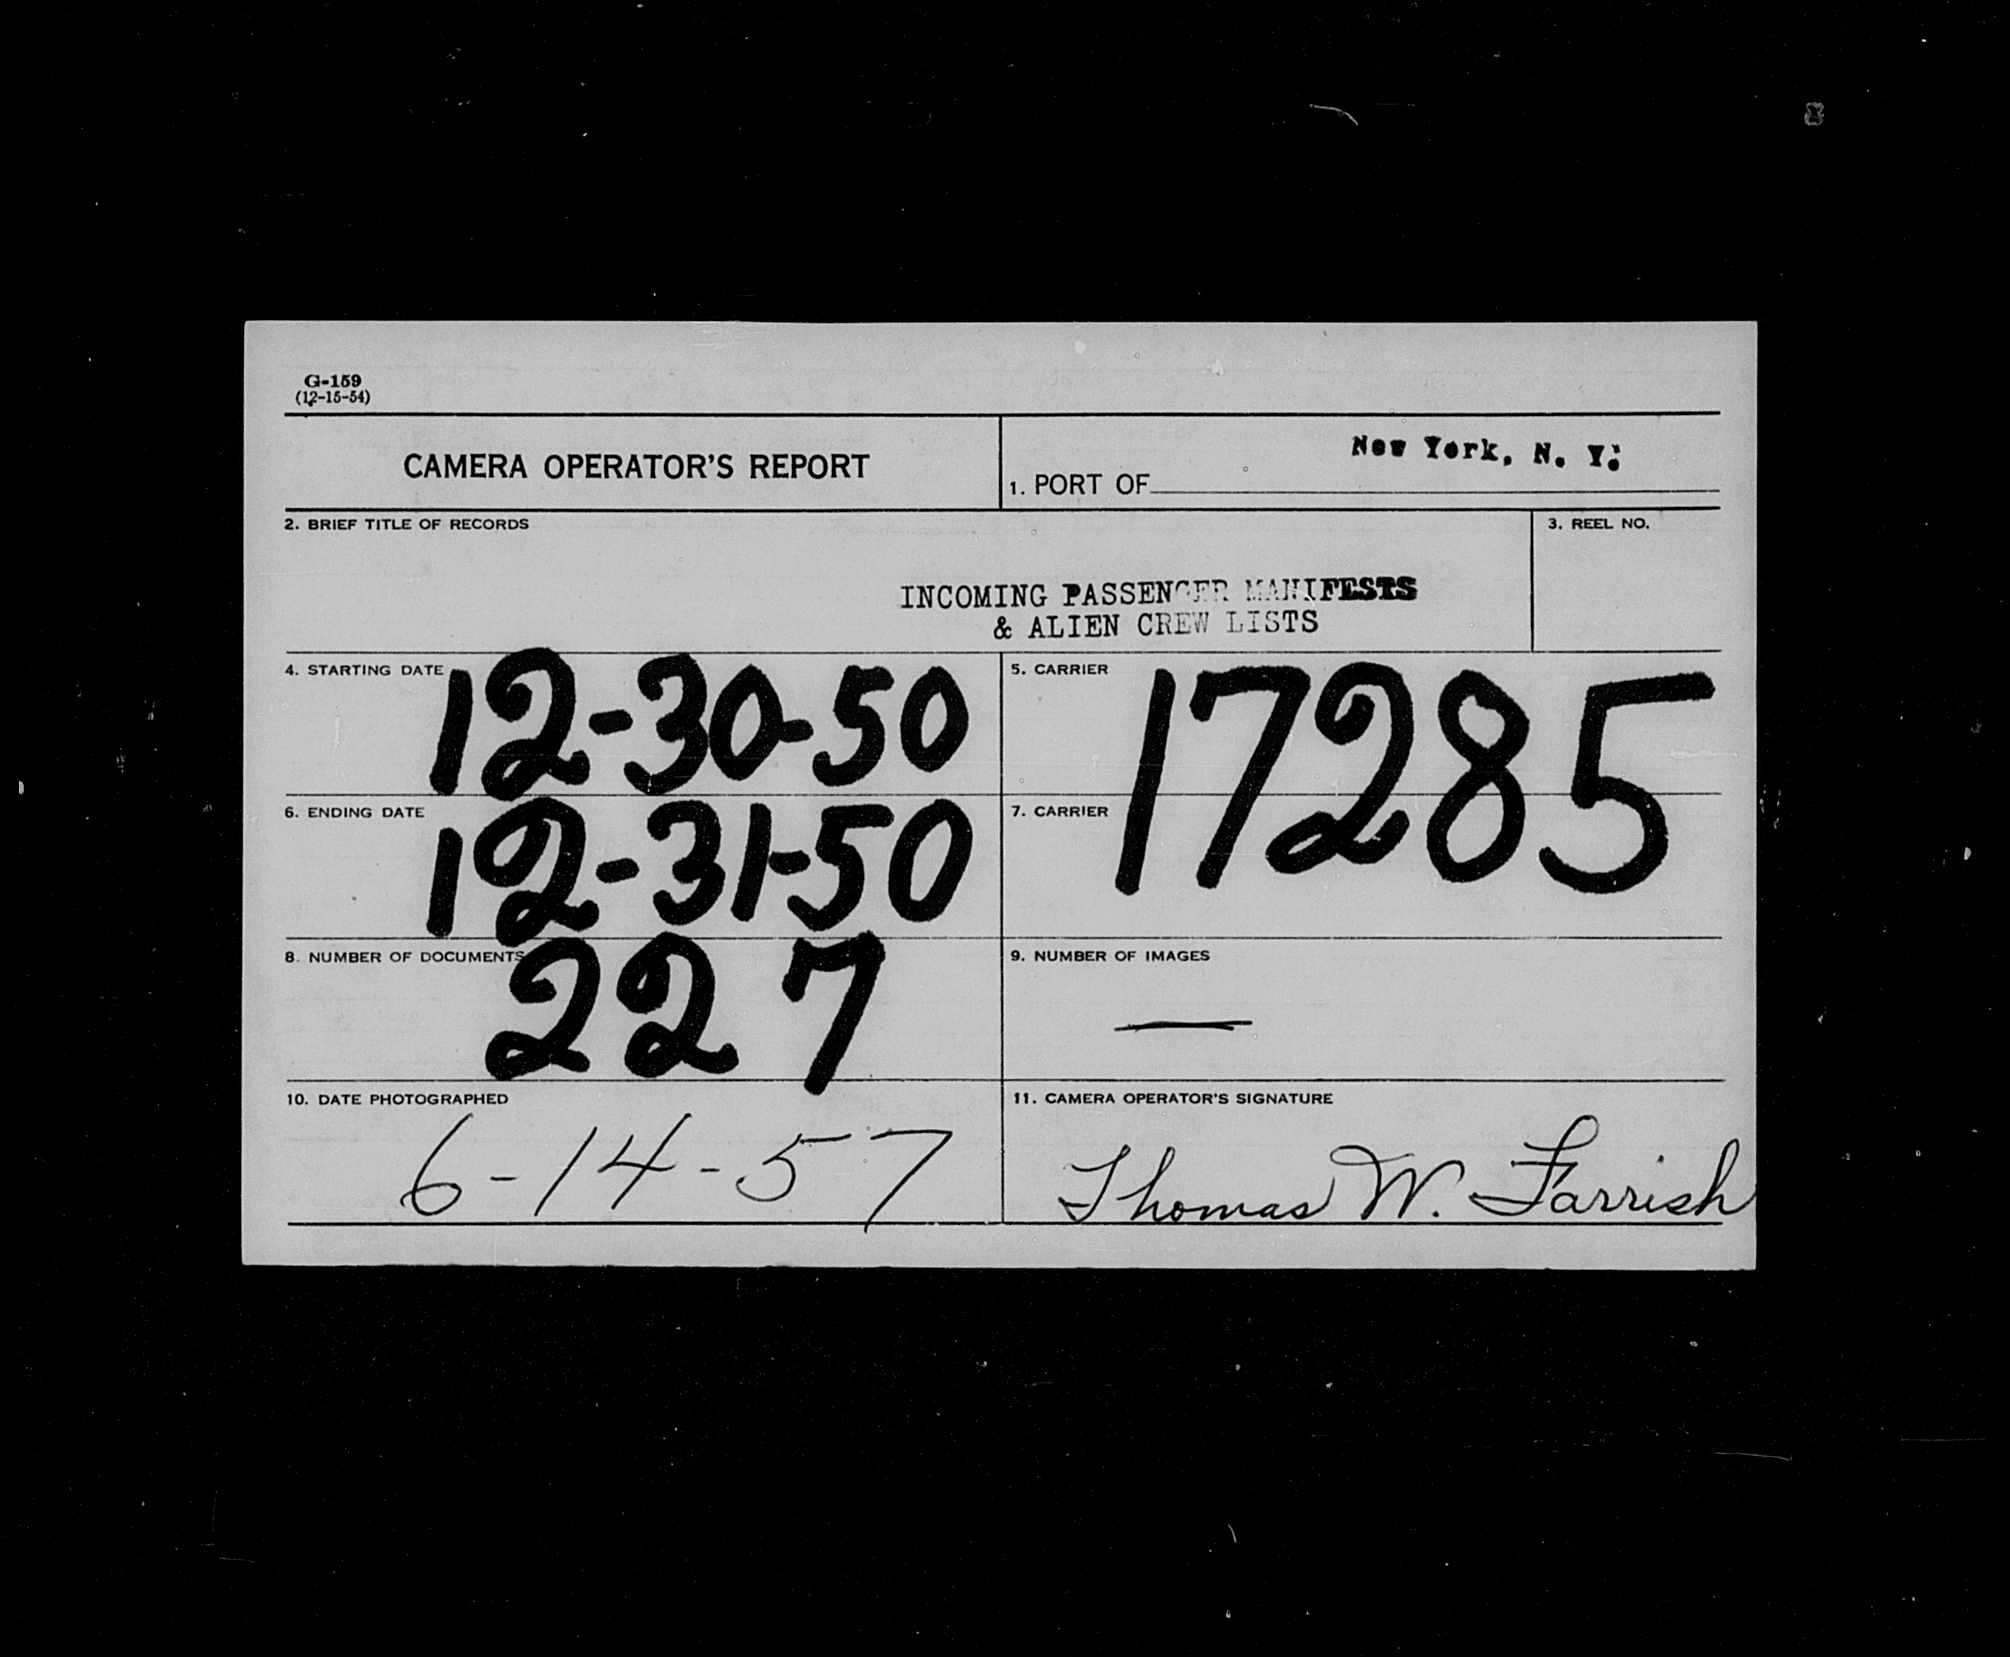 G-159
(12-15-54)
CAMERA OPERATOR'S REPORT
1. PORT OF New York, N. Y.
2. BRIEF TITLE OF RECORDS
3. REEL NO.
INCOMING PASSENGER MANIFESTS
& ALIEN CREW LISTS
4. STARTING DATE 12-30-50
5. CARRIER 17285
6. ENDING DATE 12-31-50
7. CARRIER
8. NUMBER OF DOCUMENTS 227
9. NUMBER OF IMAGES —
10. DATE PHOTOGRAPHED
6-14-57
11. CAMERA OPERATOR'S SIGNATURE
Thomas W. Farrish